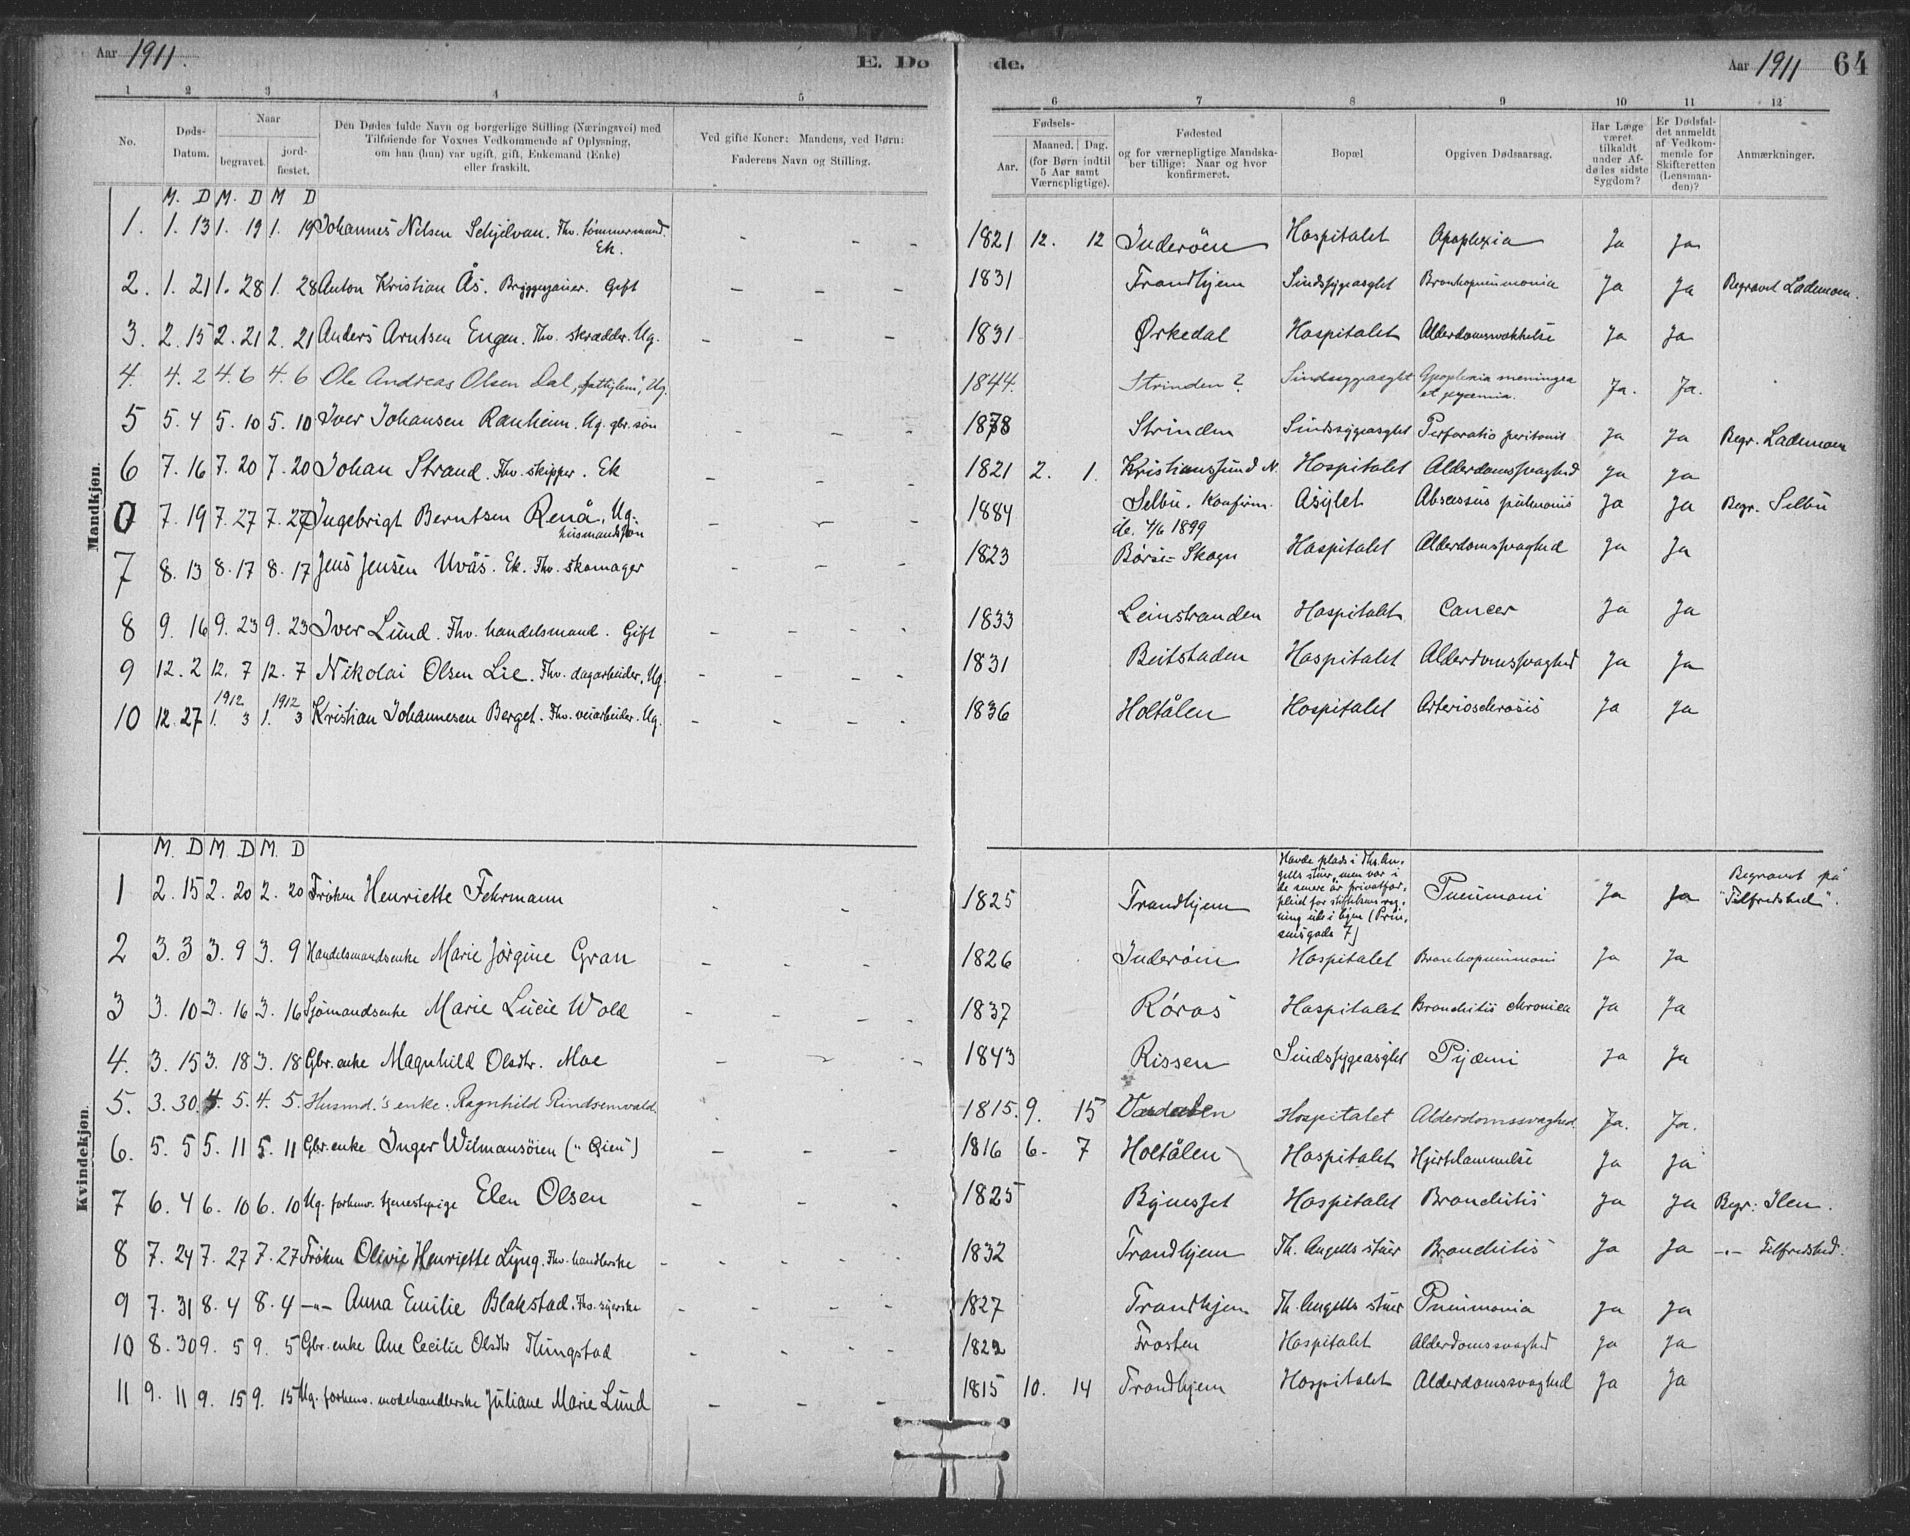 Aar 1911. E. Dø
de. Aar 1911 64
1 2 3 4 5
6 7 8 9 10 11 12
No.
Døds-
Datum.
Naar
begravet.
jord-
fæstet.
Den Dødes fulde Navn og borgerlige Stilling (Næringsvei) med
Tilføiende for Voxnes Vedkommende af Oplysning,
om han (hun) var ugift, gift, Enkemand (Enke)
eller fraskilt.
Ved gifte Koner: Mandens, ved Børn:
Faderens Navn og Stilling.
Fødsels-
Aar.
Maaned. Dag.
(for Børn indtil
5 Aar samt
Værnepligtige).
Fødested
og for værnepligtige Mandska-
ber tillige: Naar og hvor
konfirmeret.
Bopæl
Opgiven Dødsaarsag.
Har Læge
været
tilkaldt
under Af-
dødes sidste
Sygdom?
Er Dødsfal-
det anmeldt
af Vedkom-
mende for
Skifteretten
(Lensman-
den)?
Anmærkninger.
Mandkjøn.
M. D M. D M D
1. 1. 13 1. 19 1. 19 Johannes Nilsen Schjelvan. Fhv. tømmermand. - - - 1821 12. 12 Inderöen Hospitalet Apoplexia Ja Ja
Ek.
2. 1. 21 1. 28 1. 28 Anton Kristian Ås. Bryggegaver. Gift - - - 1831 Trondhjem Sindssygeasylet Bronkopneumonia Ja Ja Begravet Lademoen.
3. 2. 15 2. 21 2. 21 Anders Arntsen Engen. Fhv. skrædder. Ug. - - - 1831 Ørkedal Hospitalet Alderdomssvækkelse Ja Ja
4. 4. 2 4. 6 4. 6 Ole Andreas Olsen Dal, "fattiglem", Ug. 1844. Strinden? Sindssygeasylet Apoplexia meningea Ja. Ja.
et pyæmia.
5 5. 4 5. 10 5. 10 Iver Johansen Ranheim. Ug. gbr. søn - - - 1878 Strinden Sindssygeasylet Perforatio peritonit Ja Ja Begr. Lademoen
6 7. 16 7. 20 7. 20 Johan Strand. Fhv. skipper. Ek - - - 1821 2. 1. Kristianssund N. Hospitalet Alderdomssvaghed Ja Ja
0 7. 19 7. 27 7. 27 Ingebrigt Berntsen Renå, Ug. - - - 1884 Selbu. Konfirm. Asylet Abscessus pulmonis Ja Ja Begr. Selbu
husmandssøn
de. 4/6 1899
7 8. 13 8. 17 8. 17 Jens Jensen Uvås. Ek. Fhv. skomager - - - 1823 Børse-Skogn Hospitalet Alderdomssvaghed Ja Ja
8 9. 16 9. 23 9. 23 Iver Lund. Fhv. handelsmand. Gift - - - 1833 Leinstranden Hospitalet Cancer Ja Ja
9 12. 2 12. 7 12. 7 Nikolai Olsen Lie. Fhv. dagarbeider. Ug. - - - 1831 Beitstaden Hospitalet Alderdomssvaghed Ja Ja
1912 1912
10 12. 27 1. 3 1. 3 Kristian Johannesen Berget. Fhv. veiarbeider. Ug. - - - 1836 Holtålen Hospitalet Arteriosclerosis Ja Ja
Kvindekjøn.
M. D M. D M. D
1 2. 15 2. 20 2. 20 Frøken Henriette Fehrmann - - 1825 Trondhjem
Havde plads i Ths. An-
gells stuer, men var i
de senere år privatfor-
pleid for stiftelsens reg-
ning ude i byen (Prin-
sensgade 7)
Pneumoni Ja Ja Begravet på
"Tilfredshed".
2 3. 3 3. 9 3. 9 Handelsmandsenke Marie Jørgine Gran - - - 1826 Inderøen Hospitalet Bronkopneumoni Ja Ja
3 3. 10 3. 16 3. 16 Sjømandsenke Marie Lucie Wold - - - 1837 Røros Hospitalet Bronchitis chronica Ja Ja
4. 3. 15 3. 18 3. 18 Gbr. enke Magnhild Olsdtr. Moe - - - 1843 Rissen Sindssygeasylet Pyæmi Ja Ja
5. 3. 30. 4. 5. 4. 5. Husmd.'s enke. Ragnhild Rindsemvald 1815. 9. 15 Værdalen Hospitalet Alderdomssvaghed. Ja. Ja.
6. 5. 5 5. 11 5. 11 Gbr. enke Inger Wilmansöien ("Öien") - - - 1816 6. 7 Holtålen Hospitalet Hjertelammelse Ja Ja
7 6. 4 6. 10 6. 10 Ug. forhenv. tjenestepige Elen Olsen - - - 1825 Bynesset Hospitalet Bronchitis Ja Ja Begr. Ilen.
8 7. 24 7. 27 7. 27 Frøken Olivie Henriette Lyng. Fhv. handlerske - - - 1832 Trondhjem Th. Angells stuer Bronchitis Ja Ja -"- Tilfredshed.
9 7. 31 8. 4 8. 4 -"- Anna Emilie Blakstad. Fhv. syerske - - - 1827 Trondhjem Th. Angells stuer Pneumonia Ja Ja
10 8. 30 9. 5 9. 5 Gbr. enke Ane Cecilie Olsdtr Flungstad - - - 1822 Frosten Hospitalet Alderdomssvaghed Ja Ja
11 9. 11 9. 15 9. 15 Ug. forhenv. modehandlerske Juliane Marie Lund - - - 1815 10. 14 Trondhjem Hospitalet Alderdomssvaghed Ja Ja